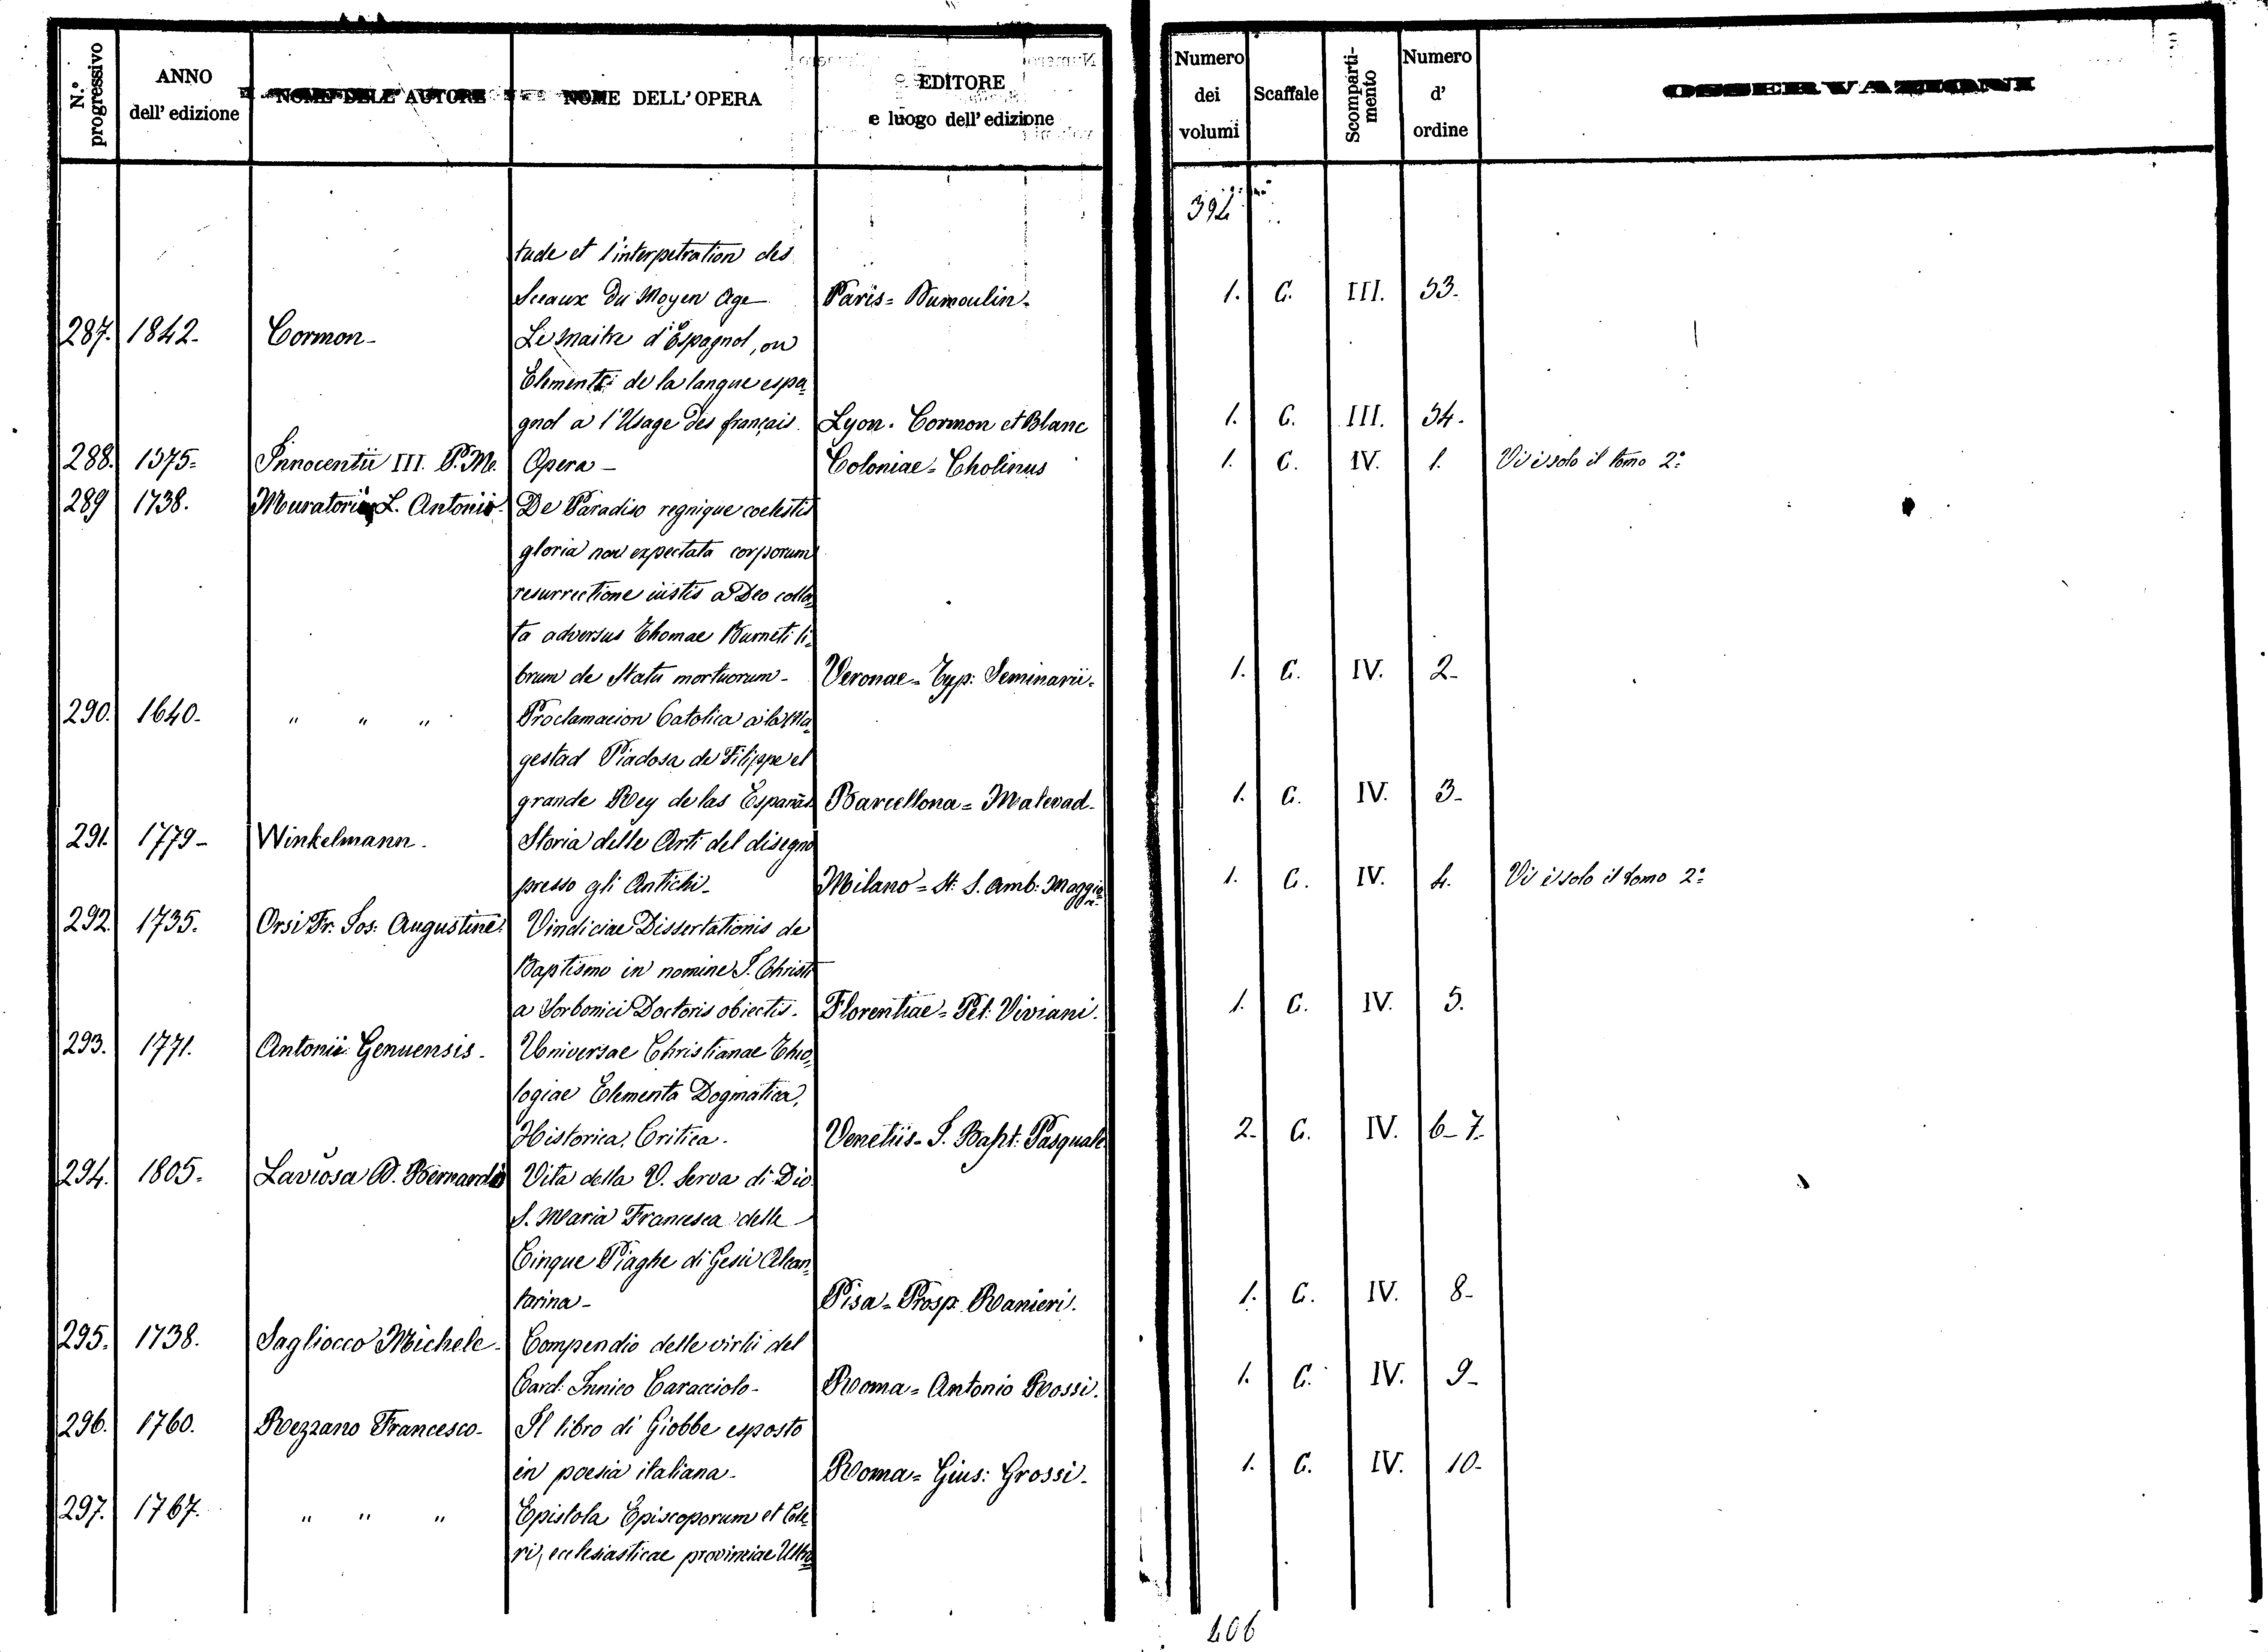 N.° progressivo
ANNO dell' edizione
NOME DELL' AUTORE
NOME DELL' OPERA
EDITORE e luogo dell' edizione
Numero dei volumi
Scaffale
Scomparti-mento
Numero d' ordine
OSSERVAZIONI
394
tude et l'interpetration des
Sceaux du Moyen Age Paris = Dumoulin - 1. C. III. 53.
287. 1842 - Cormon - Le Maitre d'Espagnol, ou
Elements de la langue espa=
gnol a l'Usage des français. Lyon. Cormon et Blanc 1. C. III. 54.
288. 1575= Innocentii III. P.M. Opera - Coloniae = Cholinus 1. C. IV. 1. Vi è solo il tomo 2°
289 1738. Muratorii L. Antonii De Paradiso regnique coelestis
gloria non expectata corporum
resurrectione iustis a Deo colla=
ta adversus Thomae Burneti li=
brum de Statu mortuorum - Veronae = Typ: Seminarii = 1. C. IV. 2-
290. 1640- " " " Proclamacion Catolica a la Ma=
gestad Piadosa de Filippe el
grande Rey de las Españas Barcellona = Matevad - 1. C. IV. 3-
291. 1779- Winkelmann. Storia delle Arti del disegno
presso gli Antichi - Milano = St. S. Amb: Maggiore 1. C. IV. 4. Vi è solo il tomo 2°
292. 1735. Orsi Fr. Ios: Augustine. Vindiciae Dissertationis de
Baptismo in nomine I. Christi
a Sorbonici Doctoris obiectis. Florentiae = Pet: Viviani. 1. C. IV. 5.
293. 1771. Antonii Genuensis - Universae Christianae Theo=
logiae Elementa Dogmatica,
Historica, Critica. Venetiis - I. Bapt: Pasquale 2- C. IV. 6-7-
294. 1805. Laviosa D. Bernardo Vita della V. Serva di Dio
S. Maria Francesca delle
Cinque Piaghe di Gesù Alcan=
tarina - Pisa = Prosp. Ranieri. 1. C. IV. 8-
295. 1738. Sagliocco Michele - Compendio delle virtù del
Card: Innico Caracciolo - Roma = Antonio Rossi. 1. C. IV. 9-
296. 1760. Rezzano Francesco - Il libro di Giobbe esposto
in poesia italiana - Roma = Gius: Grossi - 1. C. IV. 10-
297. 1767. " " " Epistola Episcoporum et
ri, ecclesiasticae provinciae
406